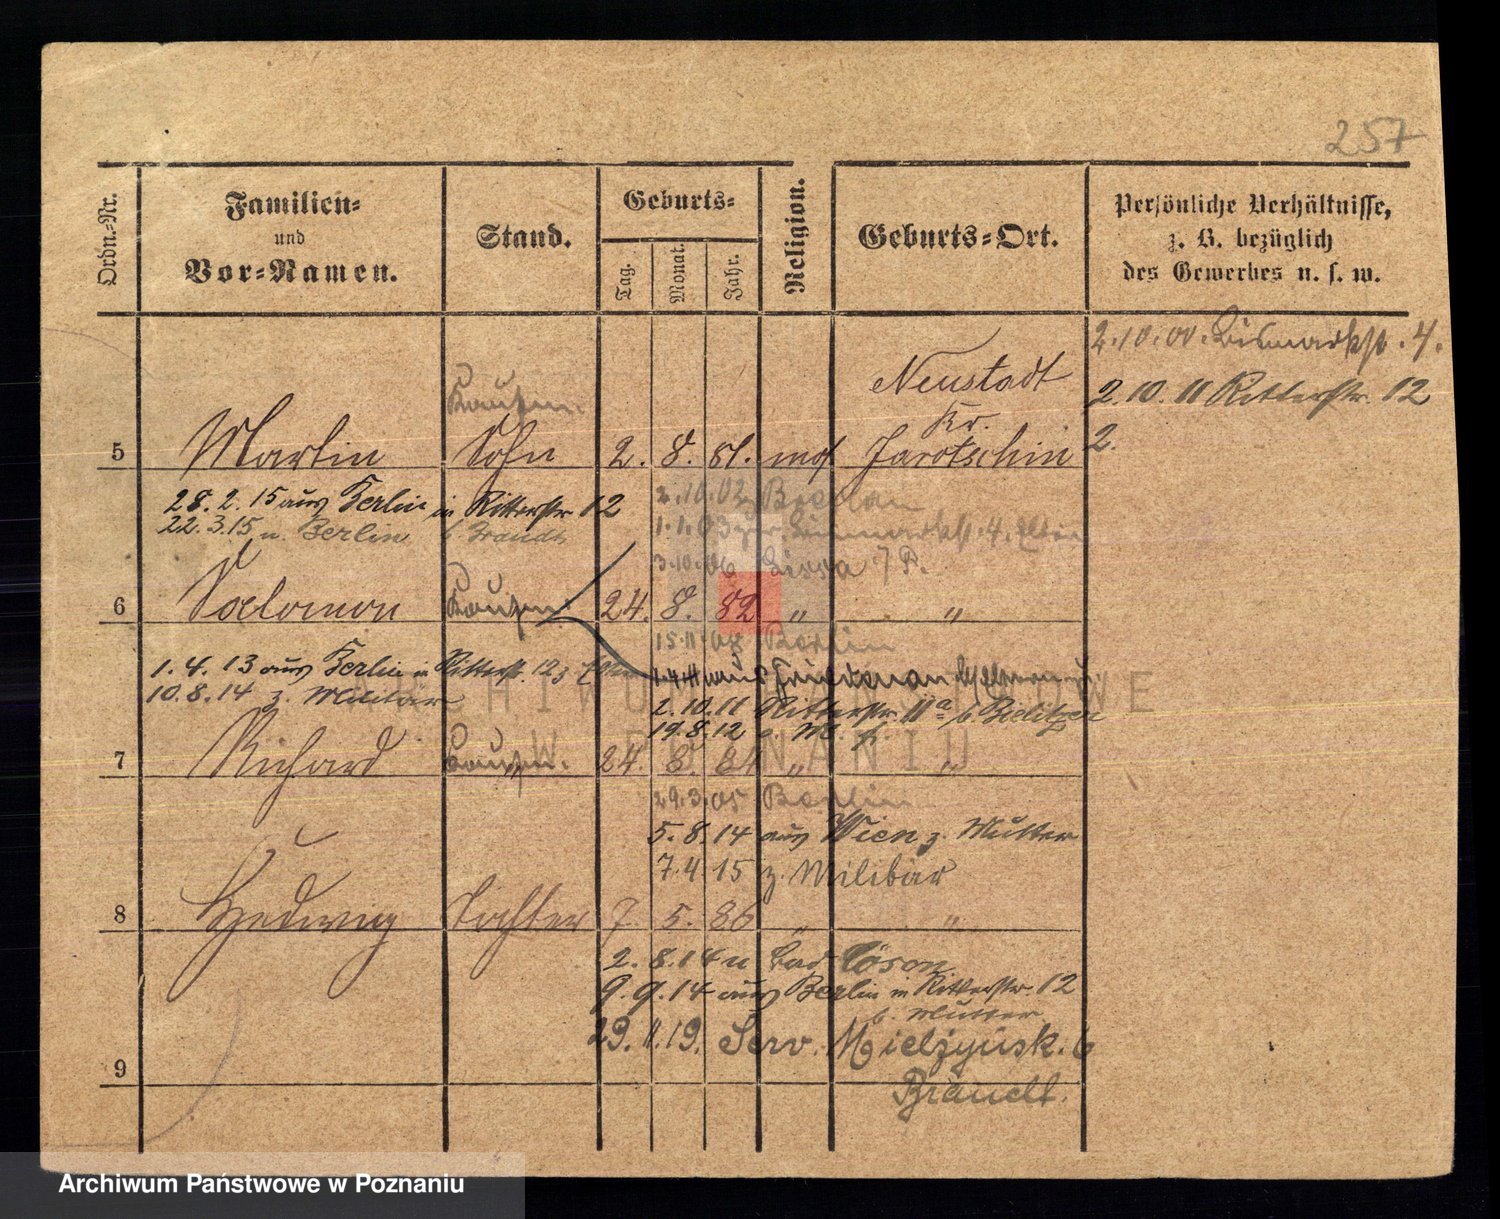 257
Ordn.-Nr.
Familien-
und
Vor-Namen.
Stand.
Geburts-
Tag.
Monat.
Jahr.
Religion.
Geburts-Ort.
Persönliche Verhältnisse,
z. B. bezüglich
des Gewerbes u. s. w.
2.10.00. Bismarckst. 4.
Neustadt
2.10.11 Ritterstr. 12
Kaufm.
Kr.
5 Martin Sohn 2. 8. 81. mos Jarotschin 2.
28.2.15 aus Berlin in Ritterstr 12
2.10.02 Breslau
22.3.15 n. Berlin b Brandt
1.1.03 4.
3.10.06 Lissa 7 P.
6 Salomon Kaufm. 24. 8. 82 " "
15.11.08 Berlin
1.4.13 aus Berlin in Ritterstr. 12
10.8.14 z. Militär
2.10.11 Ritterstr. 11a b Bielitzer
19.8.12
7 Richard Kaufm. 24. 8. 84 " "
29.3.05 Berlin
5.8.14 aus Wien z. Mutter
7.4.15 z. Militär
8 Hedwig Tochter 7. 5. 86 " "
2.8.14 n Bad Cösen
9.9.14 aus Berlin in Ritterstr. 12
b. Mutter
29.11.19. Serv. Mielzynsk. 6
9
Brandt.
ARCHIWUM PAŃSTWOWE
W POZNANIU
Archiwum Państwowe w Poznaniu